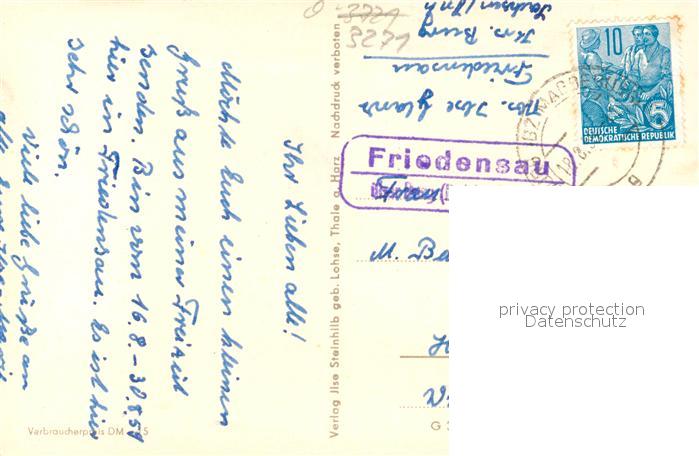 Ihr Lieben alle!
Möchte Euch einen kleinen
Gruß aus meiner Freizeit
senden. Bin vom 16.8.–30.8.59
hier in Friedensau. Es ist hier
sehr schön.
Viele liebe Grüße an
alle
Verbraucherpreis DM
Verlag Ilse Steinhilb geb. Lohse, Thale a. Harz Nachdruck verboten
3721
3271
Abs. Ilse
Friedensau
Krs. Burg
Friedensau
M.
G 2
10
5
DEUTSCHE
DEMOKRATISCHE REPUBLIK
BURG
(BZ MAGDEBURG)
18.8.
privacy protection
Datenschutz